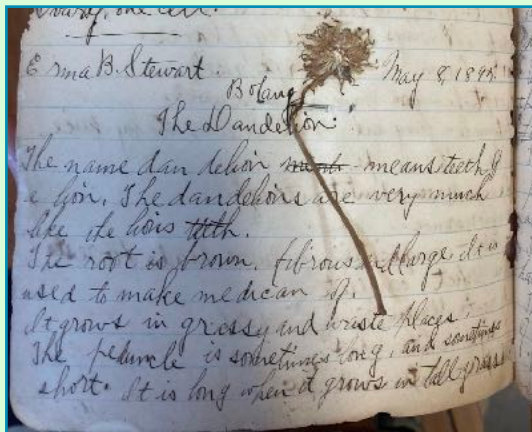 Ovary, one cell.
Erma B. Stewart. May 8, 1895.
Botany
The Dandelion.
The name dan delion means teeth of
a lion. The dandelions are very much
like the lions teeth.
The root is brown, fibrous and large. It is
used to make medican of.
It grows in grassy and waste places.
The peduncle is sometimes long, and sometimes
short. It is long when it grows in tall grass